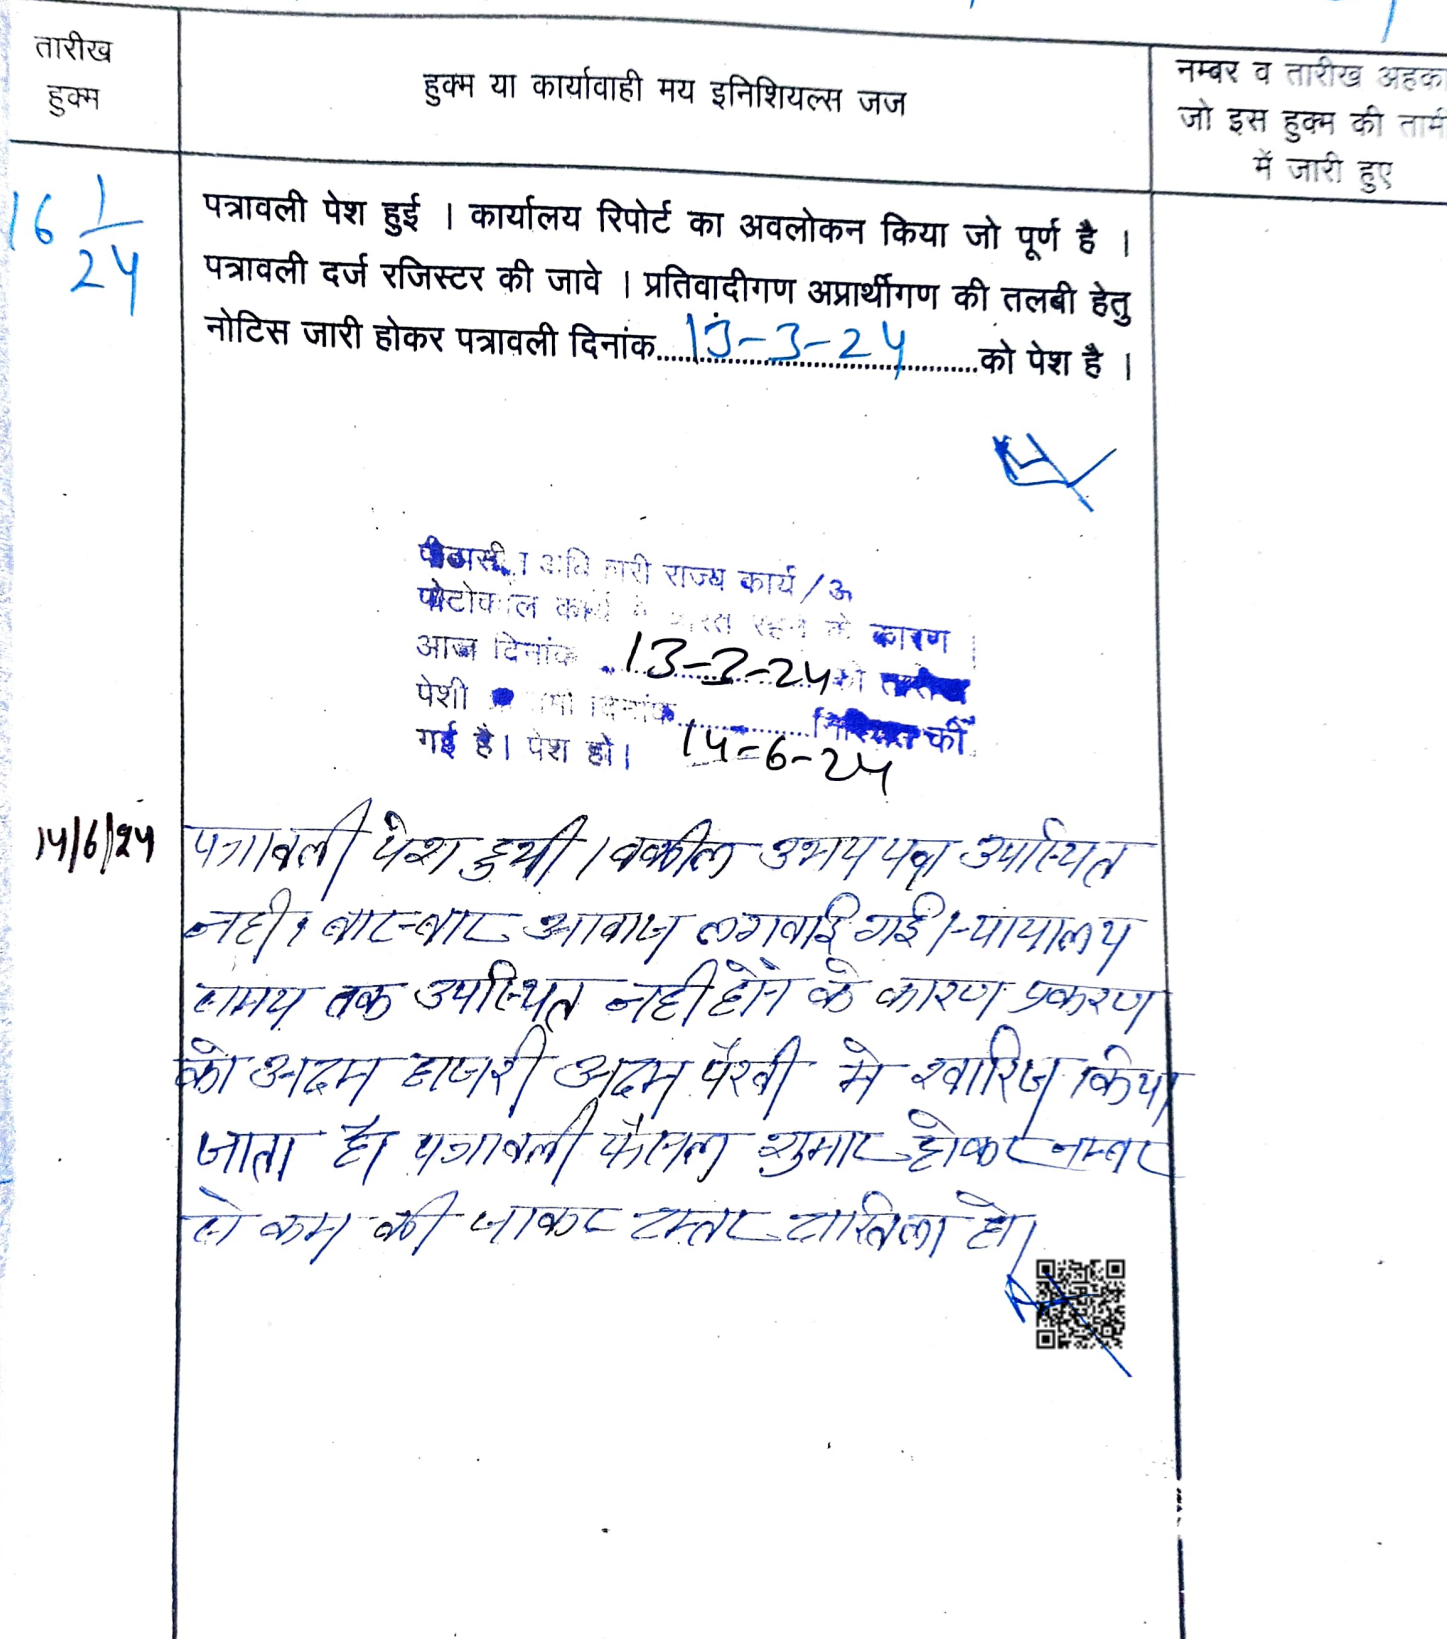 तारीख
हुक्म
हुक्म या कार्यावाही मय इनिशियल्स जज
नम्बर व तारीख अहका
जो इस हुक्म की तामी
में जारी हुए
16 1/24
पत्रावली पेश हुई । कार्यालय रिपोर्ट का अवलोकन किया जो पूर्ण है ।
पत्रावली दर्ज रजिस्टर की जावे । प्रतिवादीगण अप्रार्थीगण की तलबी हेतु
नोटिस जारी होकर पत्रावली दिनांक 13-3-24 को पेश है ।
राज्य कार्य /
रहने के कारण
आज दिनांक 13-3-24 को तारीख
पेशी दिनांक की
गई है। पेश हो। 14-6-24
14/6/24
पत्रावली पेश हुयी। वकील उभय पक्ष उपस्थित
नही। बार-बार आवाज लगवाई गई। न्यायालय
समय तक उपस्थित नही होने के कारण प्रकरण
को अदम हाजरी अदम पैरवी मे खारिज किया
जाता है। पत्रावली फैसल शुमार होकर नम्बर
से कम की जाकर दफ्तर दाखिल हो।